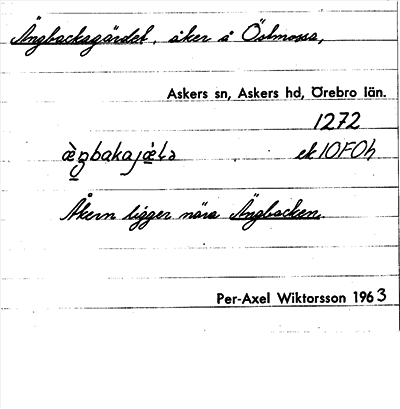 Ängbacksgärdet, åker å Östmossa,
Askers sn, Askers hd, Örebro län.
1272
ek 10F0h
Åkern ligger nära Ängbacken.
Per-Axel Wiktorsson 1963